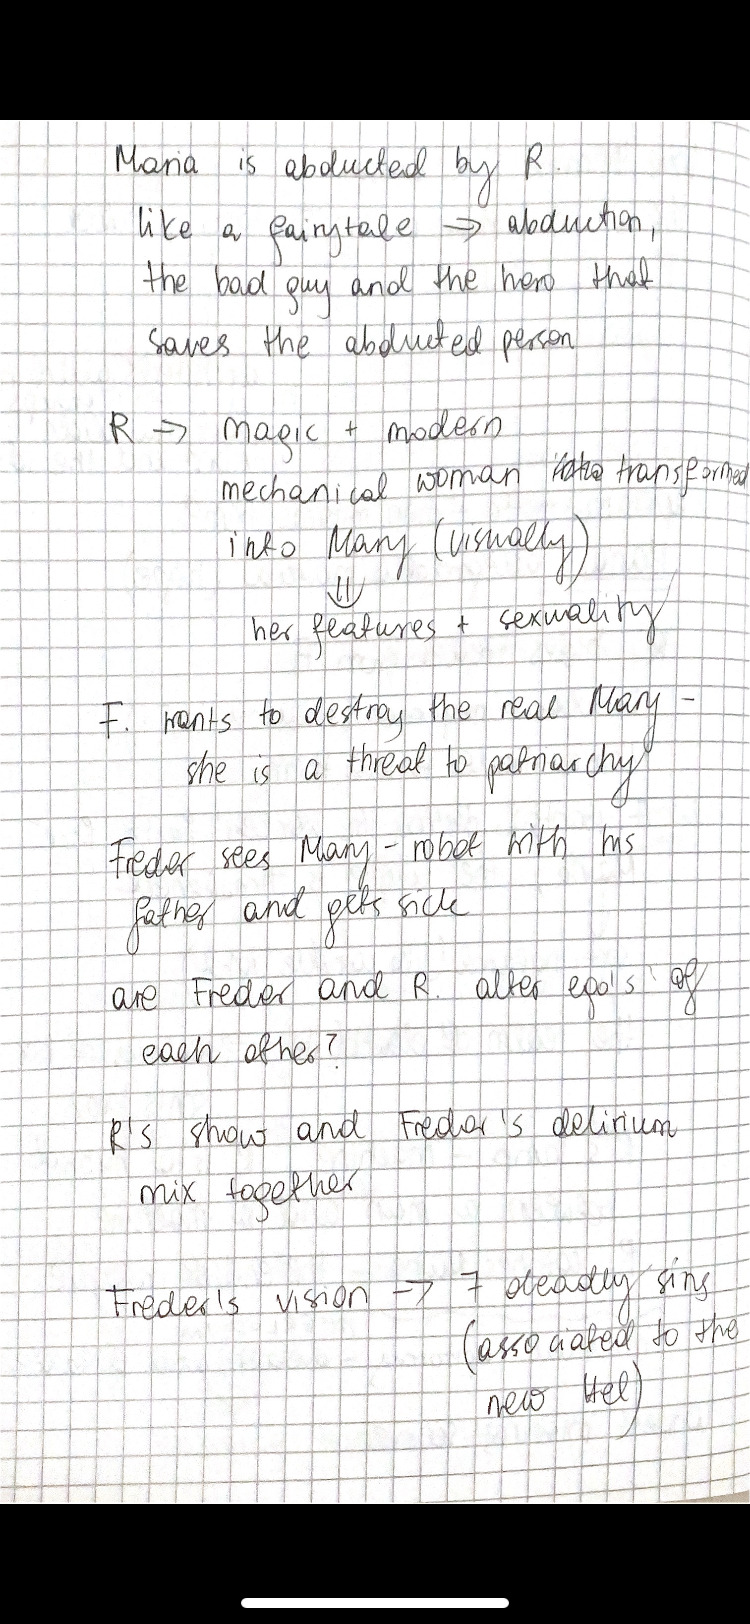 Maria is abducted by R.
like a fairytale => abduction,
the bad guy and the hero that
saves the abducted person
R -> magic + modern
mechanical woman transformed
into Mary (visually)
⇓
her features + sexuality
F. wants to destroy the real Mary -
she is a threat to patriarchy
Freder sees Mary - robot with his
father and gets sick
are Freder and R. alter ego's of
each other?
R's show and Freder's delirium
mix together
Freder's vision -> 7 deadly sins
(associated to the
new Hel)